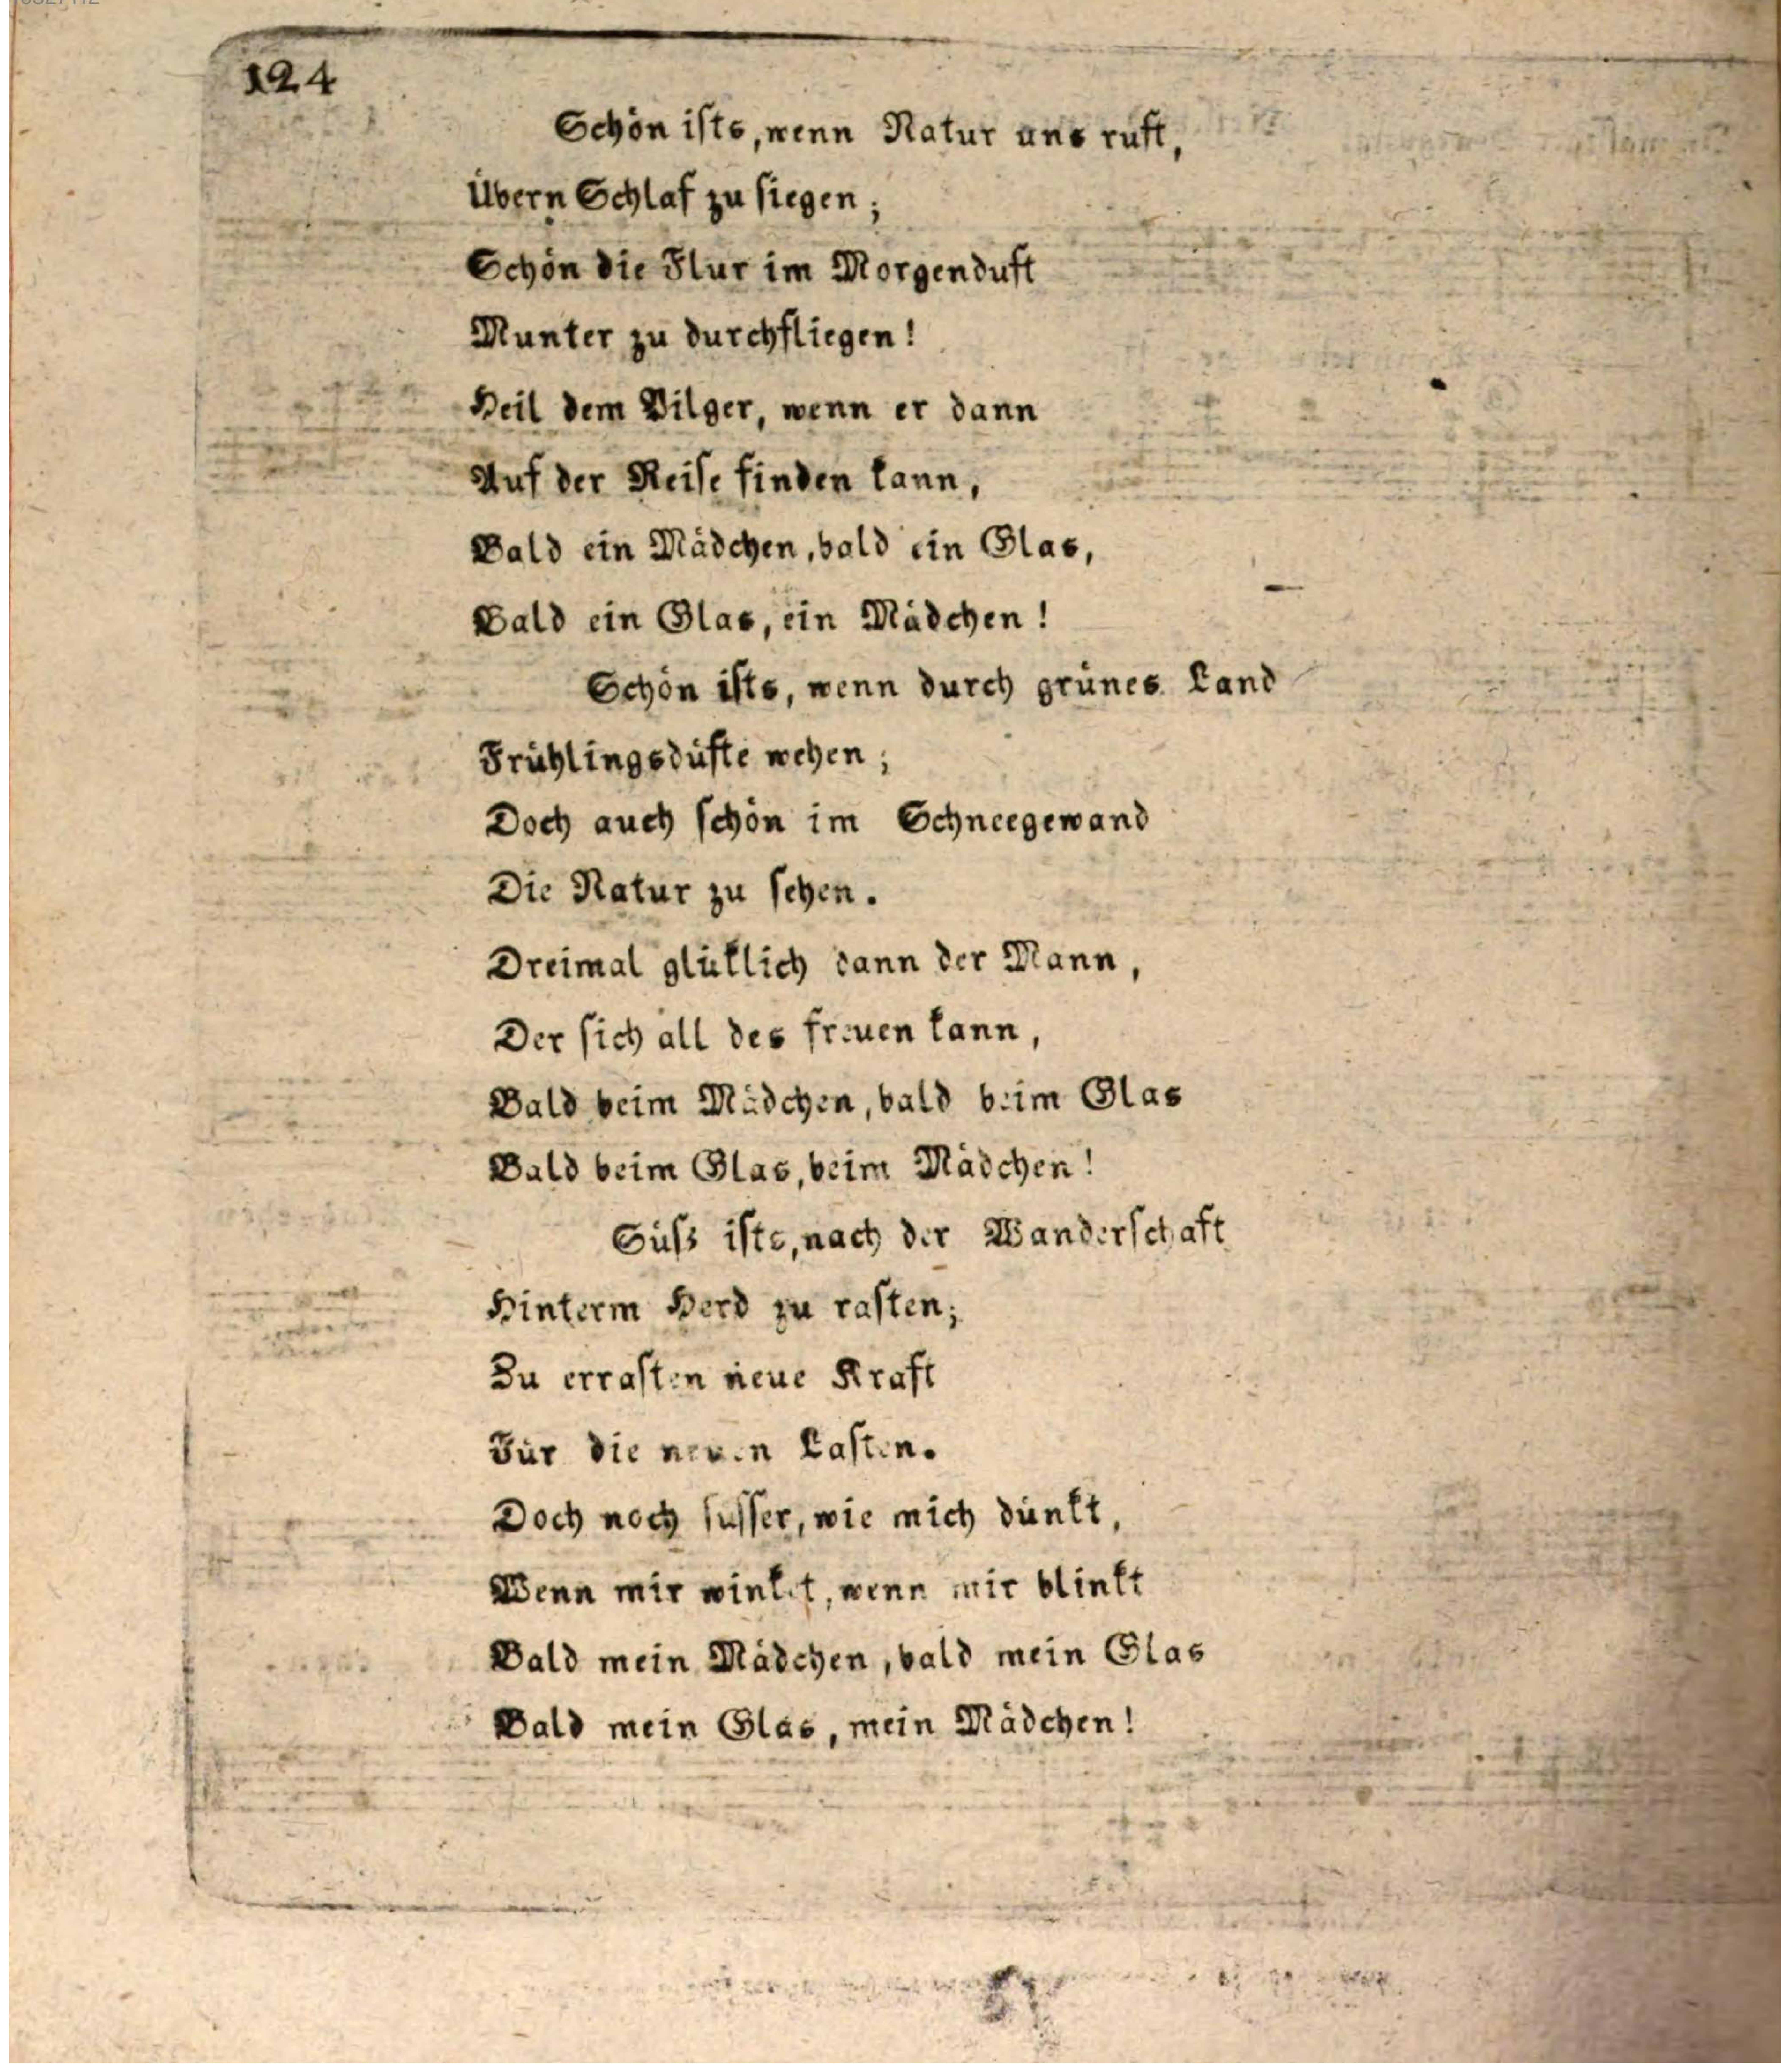 124
Schön iſts, wenn Natur uns ruft,
Übern Schlaf zu ſiegen;
Schön die Flur im Morgenduft
Munter zu durchfliegen!
Heil dem Pilger, wenn er dann
Auf der Reiſe finden kann,
Bald ein Mädchen, bald ein Glas,
Bald ein Glas, ein Mädchen!
Schön iſts, wenn durch grünes Land
Frühlingsdüfte wehen;
Doch auch ſchön im Schneegewand
Die Natur zu ſehen.
Dreimal glüklich dann der Mann,
Der ſich all des freuen kann,
Bald beim Mädchen, bald beim Glas
Bald beim Glas, beim Mädchen!
Süſz iſts, nach der Wanderſchaft
Hinterm Herd zu raſten;
Zu erraſten neue Kraft
Für die neuen Laſten.
Doch noch ſuſſer, wie mich dünkt,
Wenn mir winket, wenn mir blinkt
Bald mein Mädchen, bald mein Glas
Bald mein Glas, mein Mädchen!